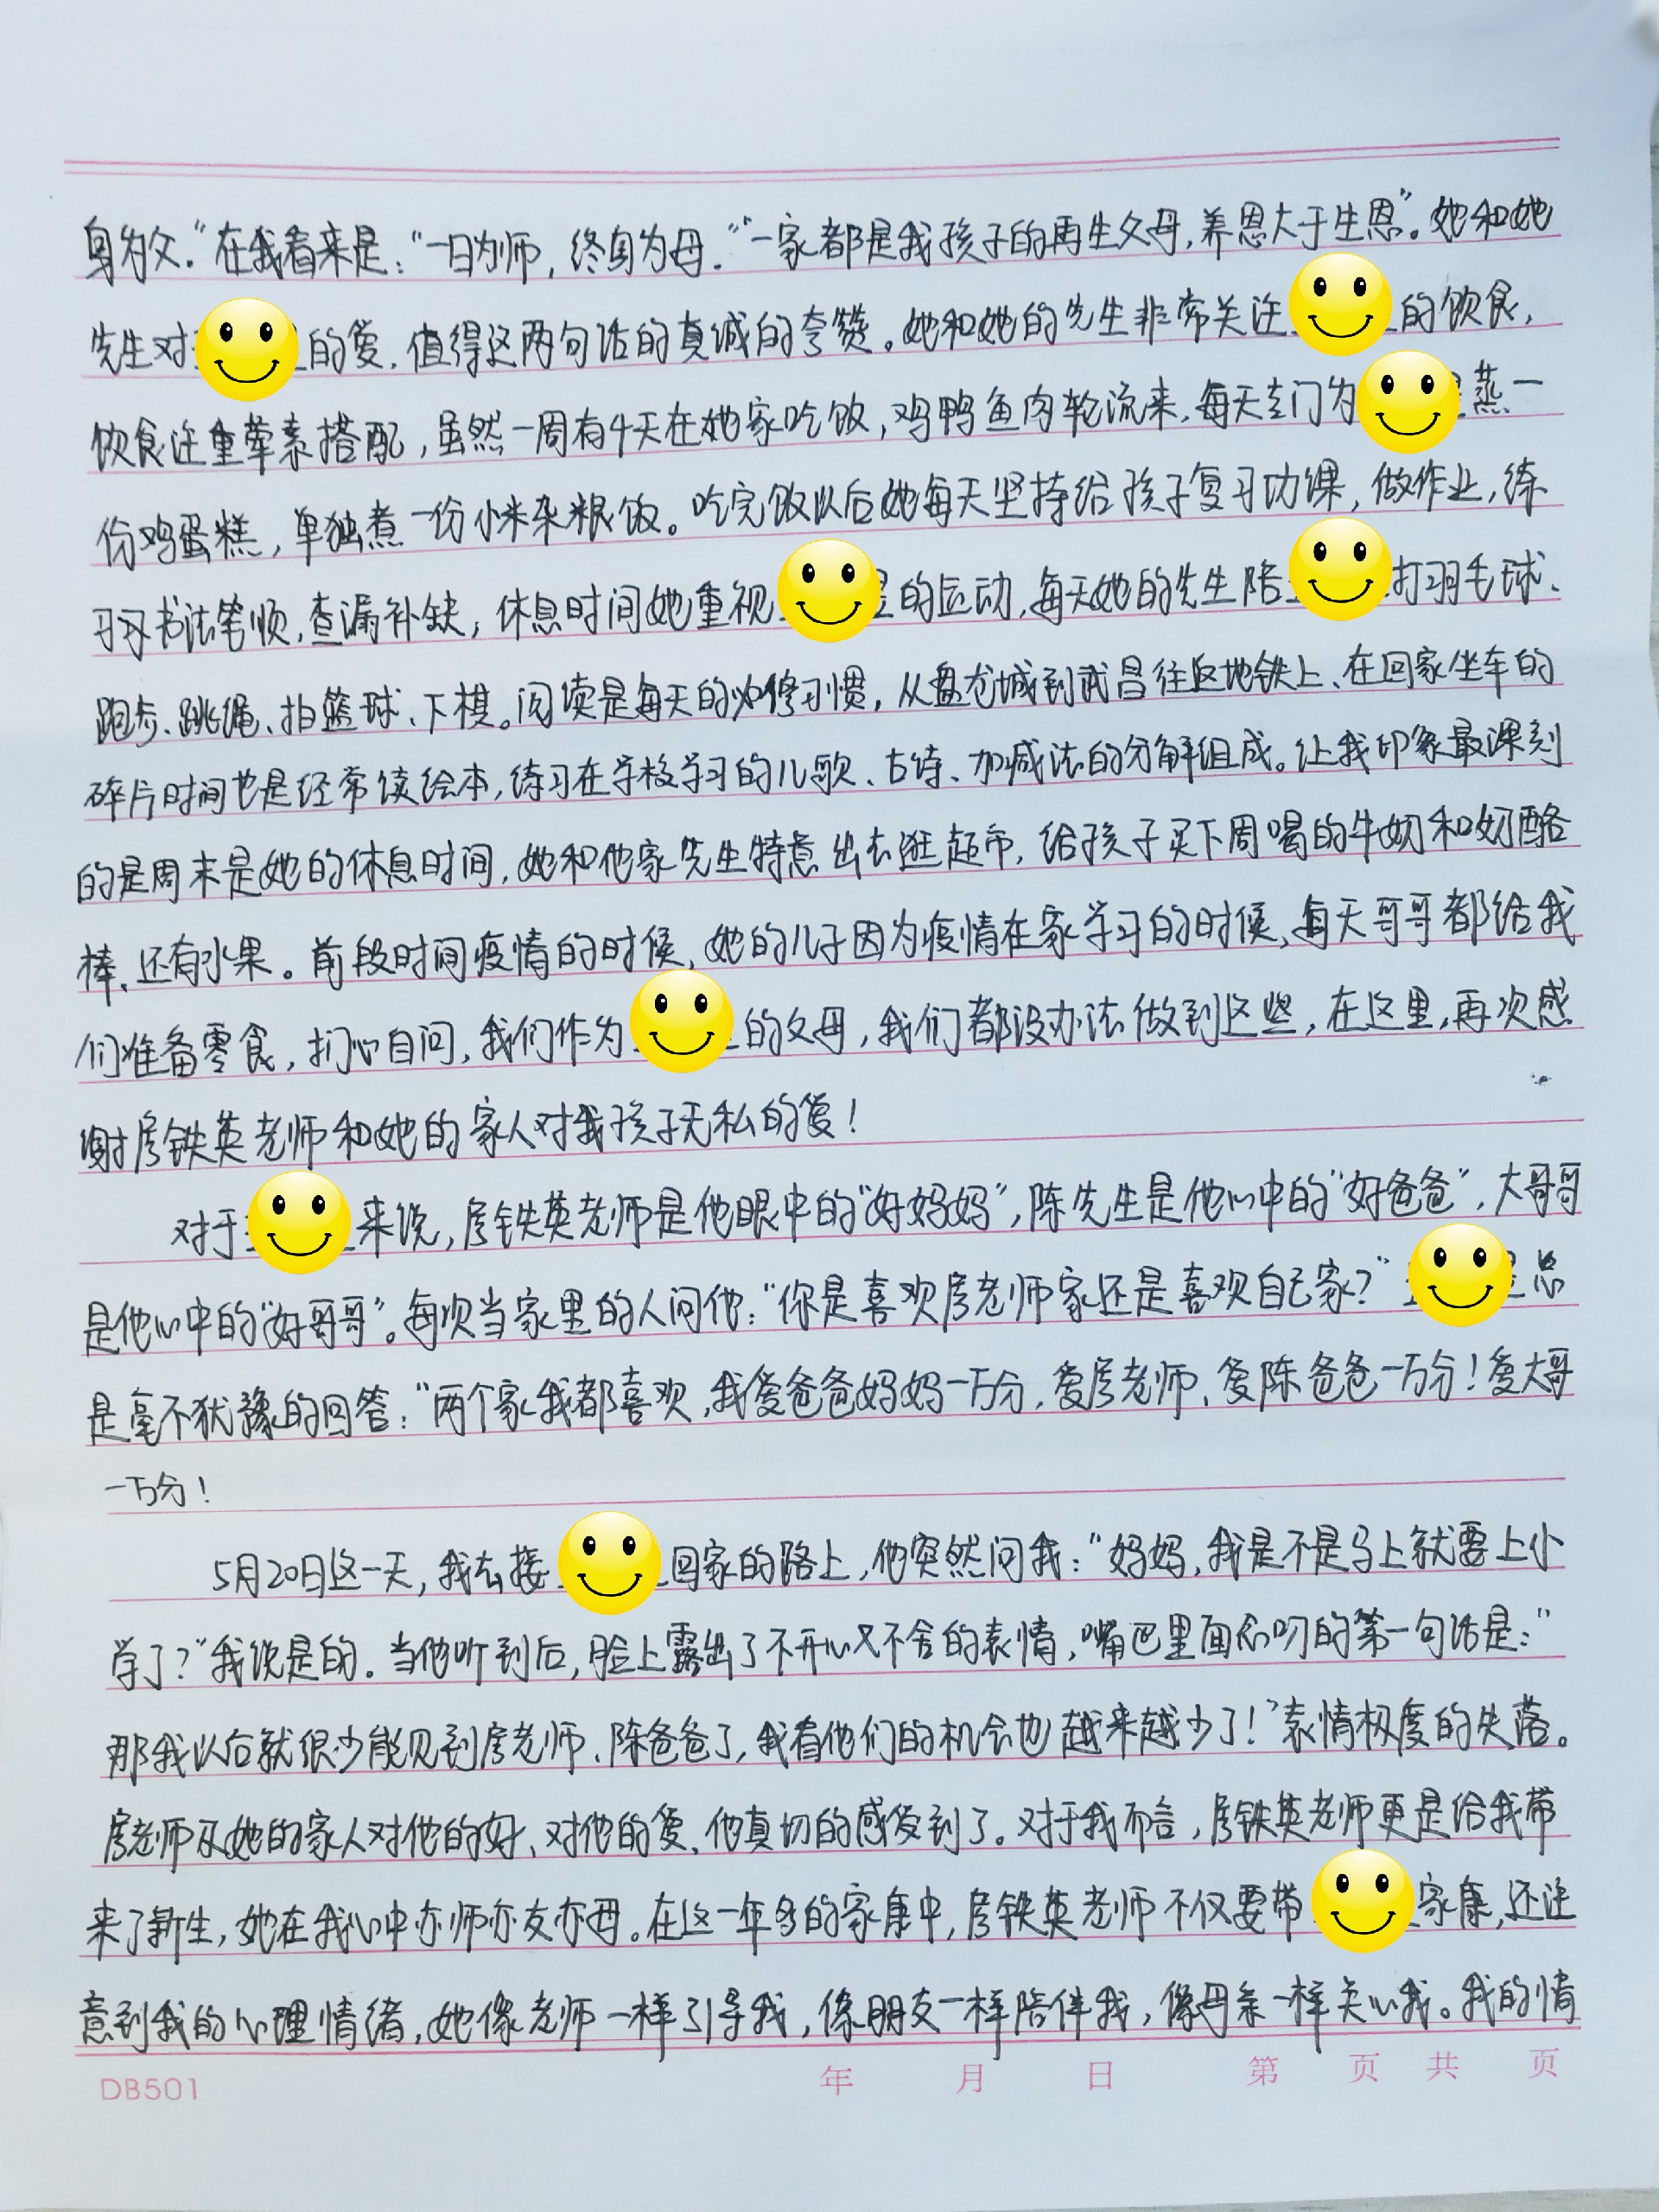 身为父.”在我看来是：“一日为师，终身为母.”“一家都是我孩子的再生父母,养恩大于生恩”。她和她
先生对的爱,值得这两句话的真诚的夸赞。她和她的先生非常关注的饮食，
饮食注重荤素搭配，虽然一周有4天在她家吃饭，鸡鸭鱼肉轮流来,每天专门为蒸一
份鸡蛋糕，单独煮一份小米杂粮饭。吃完饭以后她每天坚持给孩子复习功课，做作业，练
习书法笔顺,查漏补缺；休息时间她重视的运动,每天她的先生陪打羽毛球、
跑步、跳绳、拍篮球、下棋。阅读是每天的必修习惯，从盘龙城到武昌往返地铁上、在回家坐车的
碎片时间也是经常读绘本，练习在学校学习的儿歌、古诗、加减法的分解组成。让我印象最深刻
的是周末是她的休息时间,她和他家先生特意出去逛超市,给孩子买下周喝的牛奶和奶酪
棒、还有水果。前段时间疫情的时候,她的儿子因为疫情在家学习的时候,每天哥哥都给我
们准备零食，扪心自问，我们作为的父母，我们都没办法做到这些，在这里,再次感
谢房铁英老师和她的家人对我孩子无私的爱！
对于来说,房铁英老师是他眼中的“好妈妈”,陈先生是他心中的“好爸爸”，大哥哥
是他心中的“好哥哥”。每次当家里的人问他：“你是喜欢房老师家还是喜欢自己家？”总
是毫不犹豫的回答：“两个家我都喜欢,我爱爸爸妈妈一万分，爱房老师、爱陈爸爸一万分！爱大哥
一万分！
5月20日这一天，我去接回家的路上,他突然问我：“妈妈，我是不是马上就要上小
学了？”我说是的.当他听到后,脸上露出了不开心又不舍的表情,嘴巴里面念叨的第一句话是：“
那我以后就很少能见到房老师、陈爸爸了,我看他们的机会也越来越少了！”表情极度的失落。
房老师及她的家人对他的好、对他的爱、他真切的感受到了。对于我而言，房铁英老师更是给我带
来了新生，她在我心中亦师亦友亦母.在这一年多的家康中,房铁英老师不仅要带家康,还注
意到我的心理情绪,她像老师一样引导我，像朋友一样陪伴我，像母亲一样关心我。我的情
DB501 年 月 日 第 页 共 页